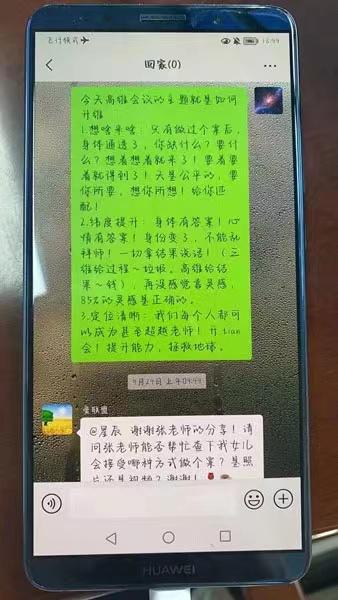 飞行模式
回家(0)
今天高维会议的主题就是如何
开维
1.想啥来啥：只有做过个案后，
身体通透了，你缺什么？要什
么？想着想着就来了！要着要
着就得到了！天是公平的，要
你所要，想你所想！给你匹
配！
2.纬度提升：身体有答案！心
情有答案！身份变了，不能乱
拜师！一切拿结果说话！（三
维给过程～垃圾。高维给结
果～钱），再没感觉言灵感，
85%的灵感是正确的。
3.定位清晰：我们每个人都可
以成为甚至超越老师！开tian
会！提升能力，拯救地球。
爱联盟
@星辰 谢谢张老师的分享！请
问张老师能否帮忙查下我女儿
会接受哪种方式做个案？是照
片还是视频？谢谢！
HUAWEI